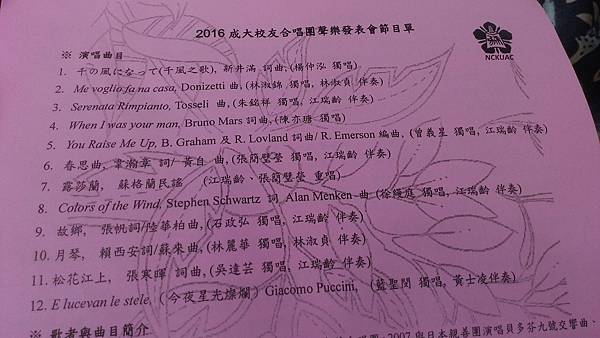 2016 成大校友合唱團聲樂發表會節目單
NCKUAC
※ 演唱曲目
1. 千の風になって(千風之歌), 新井滿 詞曲,(楊仲泓 獨唱)
2. Me voglio fa na casa, Donizetti 曲,(林淑錦 獨唱, 林淑貞 伴奏)
3. Serenata Rimpianto, Tosseli 曲,(朱銘祥 獨唱, 江瑞齡 伴奏)
4. When I was your man, Bruno Mars 詞曲,(陳亦瑭 獨唱)
5. You Raise Me Up, B. Graham 及 R. Lovland 詞曲/ R. Emerson 編曲, (曾義星 獨唱, 江瑞齡 伴奏)
6. 春思曲, 韋瀚章 詞/ 黃自 曲,(張簡璧瑩 獨唱, 江瑞齡 伴奏)
7. 露莎蘭, 蘇格蘭民謠 (江瑞齡、張簡璧瑩 重唱)
8. Colors of the Wind, Stephen Schwartz 詞 Alan Menken 曲 (徐縵庭 獨唱, 江瑞齡 伴奏)
9. 故鄉, 張帆詞/陸華柏曲,(石政弘 獨唱, 江瑞齡 伴奏)
10. 月琴, 賴西安詞/蘇來曲,(林麗華 獨唱, 林淑貞 伴奏)
11. 松花江上, 張寒暉 詞曲,(吳達芸 獨唱, 江瑞齡 伴奏)
12. E lucevan le stele, (今夜星光燦爛) Giacomo Puccini, (藍聖閔 獨唱, 黃士凌伴奏)
※ 歌者與曲目簡介
2007 與日本親善團演唱貝多芬九號交響曲、